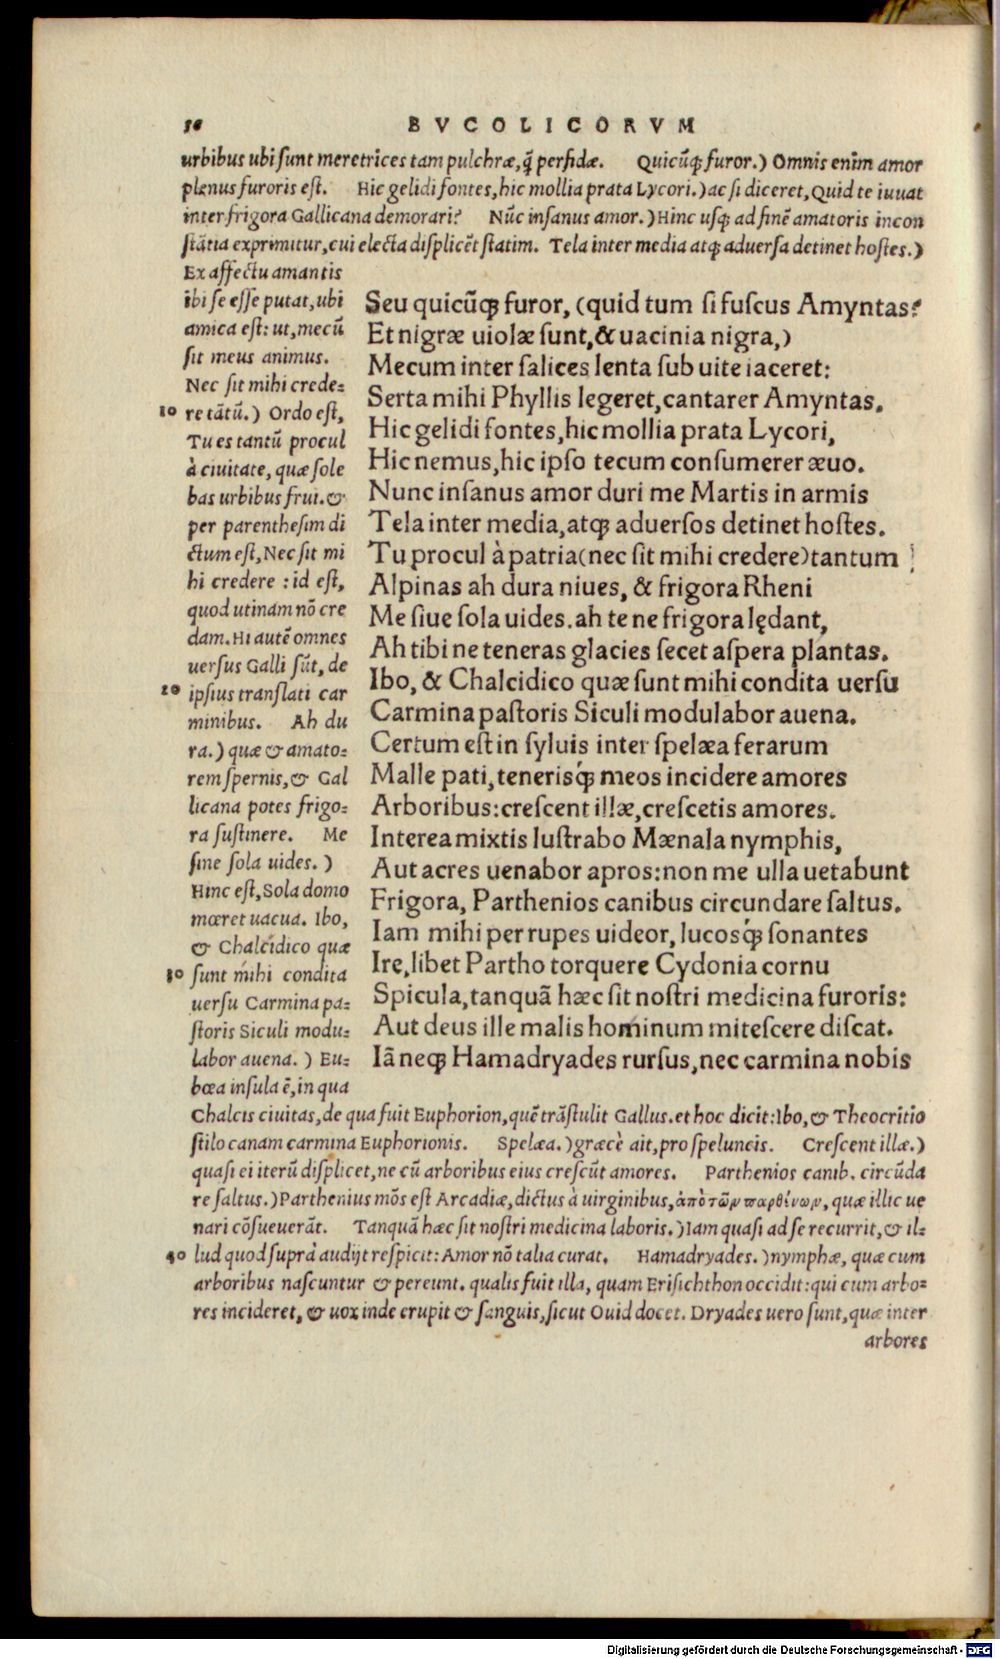 56
BVCOLICORVM
urbibus ubi ſunt meretrices tam pulchræ, q̃ perfidæ. Quicũq; furor.) Omnis enim amor
plenus furoris eſt. Hic gelidi fontes, hic mollia prata Lycori.) ac ſi diceret, Quid te iuuat
inter frigora Gallicana demorari? Nũc inſanus amor.) Hinc uſq; ad finẽ amatoris incon
ſtãtia exprimitur, cui electa diſplicẽt ſtatim. Tela inter media atq; aduerſa detinet hoſtes.)
Ex affectu amantis
ibi ſe eſſe putat, ubi
amica eſt: ut, mecũ
ſit meus animus.
Nec ſit mihi crede-
10 re tãtũ.) Ordo eſt,
Tu es tantũ procul
à ciuitate, quæ ſole
bas urbibus frui. &
per parentheſim di
ctum eſt, Nec ſit mi
hi credere : id eſt,
quod utinam nõ cre
dam. Hi autẽ omnes
uerſus Galli ſũt, de
20 ipſius tranſlati car
minibus. Ah du
ra.) quæ & amato-
rem ſpernis, & Gal
licana potes frigo-
ra ſuſtinere. Me
ſine ſola uides.)
Hinc eſt, Sola domo
mœret uacua. Ibo,
& Chalcidico quæ
30 ſunt mihi condita
uerſu Carmina pa-
ſtoris Siculi modu-
labor auena.) Eu-
bœa inſula ẽ, in qua
Seu quicũq; furor, (quid tum ſi fuſcus Amyntas?
Et nigræ uiolæ ſunt, & uacinia nigra,)
Mecum inter ſalices lenta ſub uite iaceret:
Serta mihi Phyllis legeret, cantarer Amyntas.
Hic gelidi fontes, hic mollia prata Lycori,
Hic nemus, hic ipſo tecum conſumerer æuo.
Nunc inſanus amor duri me Martis in armis
Tela inter media, atq; aduerſos detinet hoſtes.
Tu procul à patria (nec ſit mihi credere) tantum
Alpinas ah dura niues, & frigora Rheni
Me ſiue ſola uides. ah te ne frigora lędant,
Ah tibi ne teneras glacies ſecet aſpera plantas.
Ibo, & Chalcidico quæ ſunt mihi condita uerſu
Carmina paſtoris Siculi modulabor auena.
Certum eſt in ſyluis inter ſpelæa ferarum
Malle pati, teneriśq; meos incidere amores
Arboribus: creſcent illæ, creſcetis amores.
Interea mixtis luſtrabo Mænala nymphis,
Aut acres uenabor apros: non me ulla uetabunt
Frigora, Parthenios canibus circundare ſaltus.
Iam mihi per rupes uideor, lucośq; ſonantes
Ire, libet Partho torquere Cydonia cornu
Spicula, tanquã hæc ſit noſtri medicina furoris:
Aut deus ille malis hominum miteſcere diſcat.
Iã neq; Hamadryades rurſus, nec carmina nobis
Chalcis ciuitas, de qua fuit Euphorion, quẽ trãſtulit Gallus. et hoc dicit: Ibo, & Theocritio
ſtilo canam carmina Euphorionis. Spelæa.) græcè ait, pro ſpeluncis. Creſcent illæ.)
quaſi ei iterũ diſplicet, ne cũ arboribus eius creſcũt amores. Parthenios canib. circũda
re ſaltus.) Parthenius mõs eſt Arcadiæ, dictus à uirginibus, ἀπὸ τῶν παρθένων, quæ illic ue
nari cõſueuerãt. Tanquã hæc ſit noſtri medicina laboris.) Iam quaſi ad ſe recurrit, & il-
40 lud quod ſuprà audijt reſpicit: Amor nõ talia curat. Hamadryades.) nymphæ, quæ cum
arboribus naſcuntur & pereunt. qualis fuit illa, quam Eriſichthon occidit: qui cum arbo-
res incideret, & uox inde erupit & ſanguis, ſicut Ouid docet. Dryades uero ſunt, quæ inter
arbores
Digitalisierung gefördert durch die Deutsche Forschungsgemeinschaft - DFG